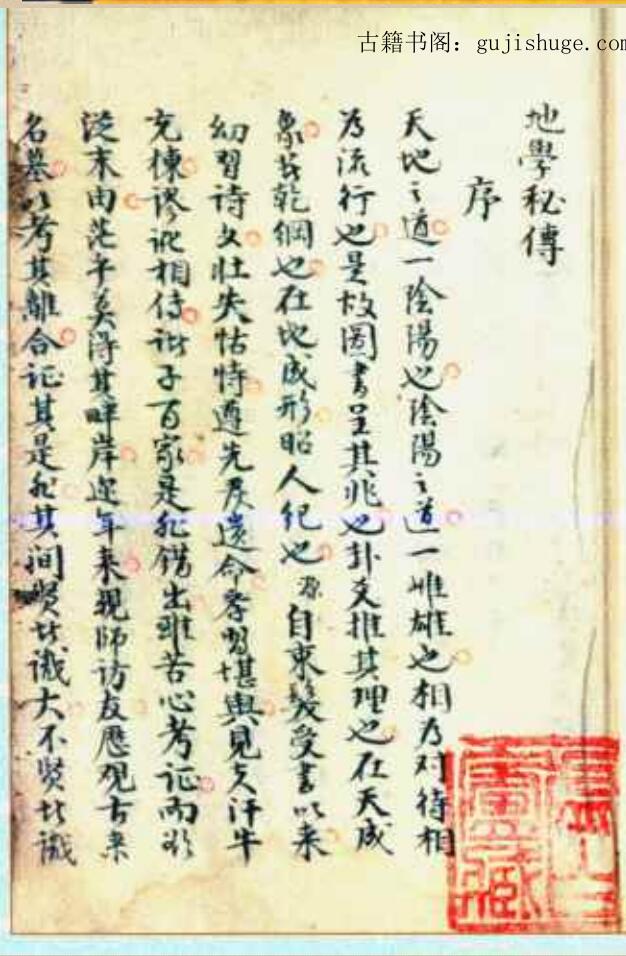 古籍书阁：gujishuge.com
地學秘傳
序
天地之道一陰陽也陰陽之道一雌雄也相为对待相
为流行也是故圖書呈其兆也卦爻推其理也在天成
象昭乾綱也在地成形昭人纪也源自束髮受書以来
幼習詩文壮失怙恃遵先君遺命孝習堪輿見文汗牛
充棟谬讹相传諸子百家是非错出雖苦心考証而欲
從末由茫乎莫得其畔岸迩年来親师访友歷观古来
名墓以考其離合证其是非其间賢者識大不賢者識